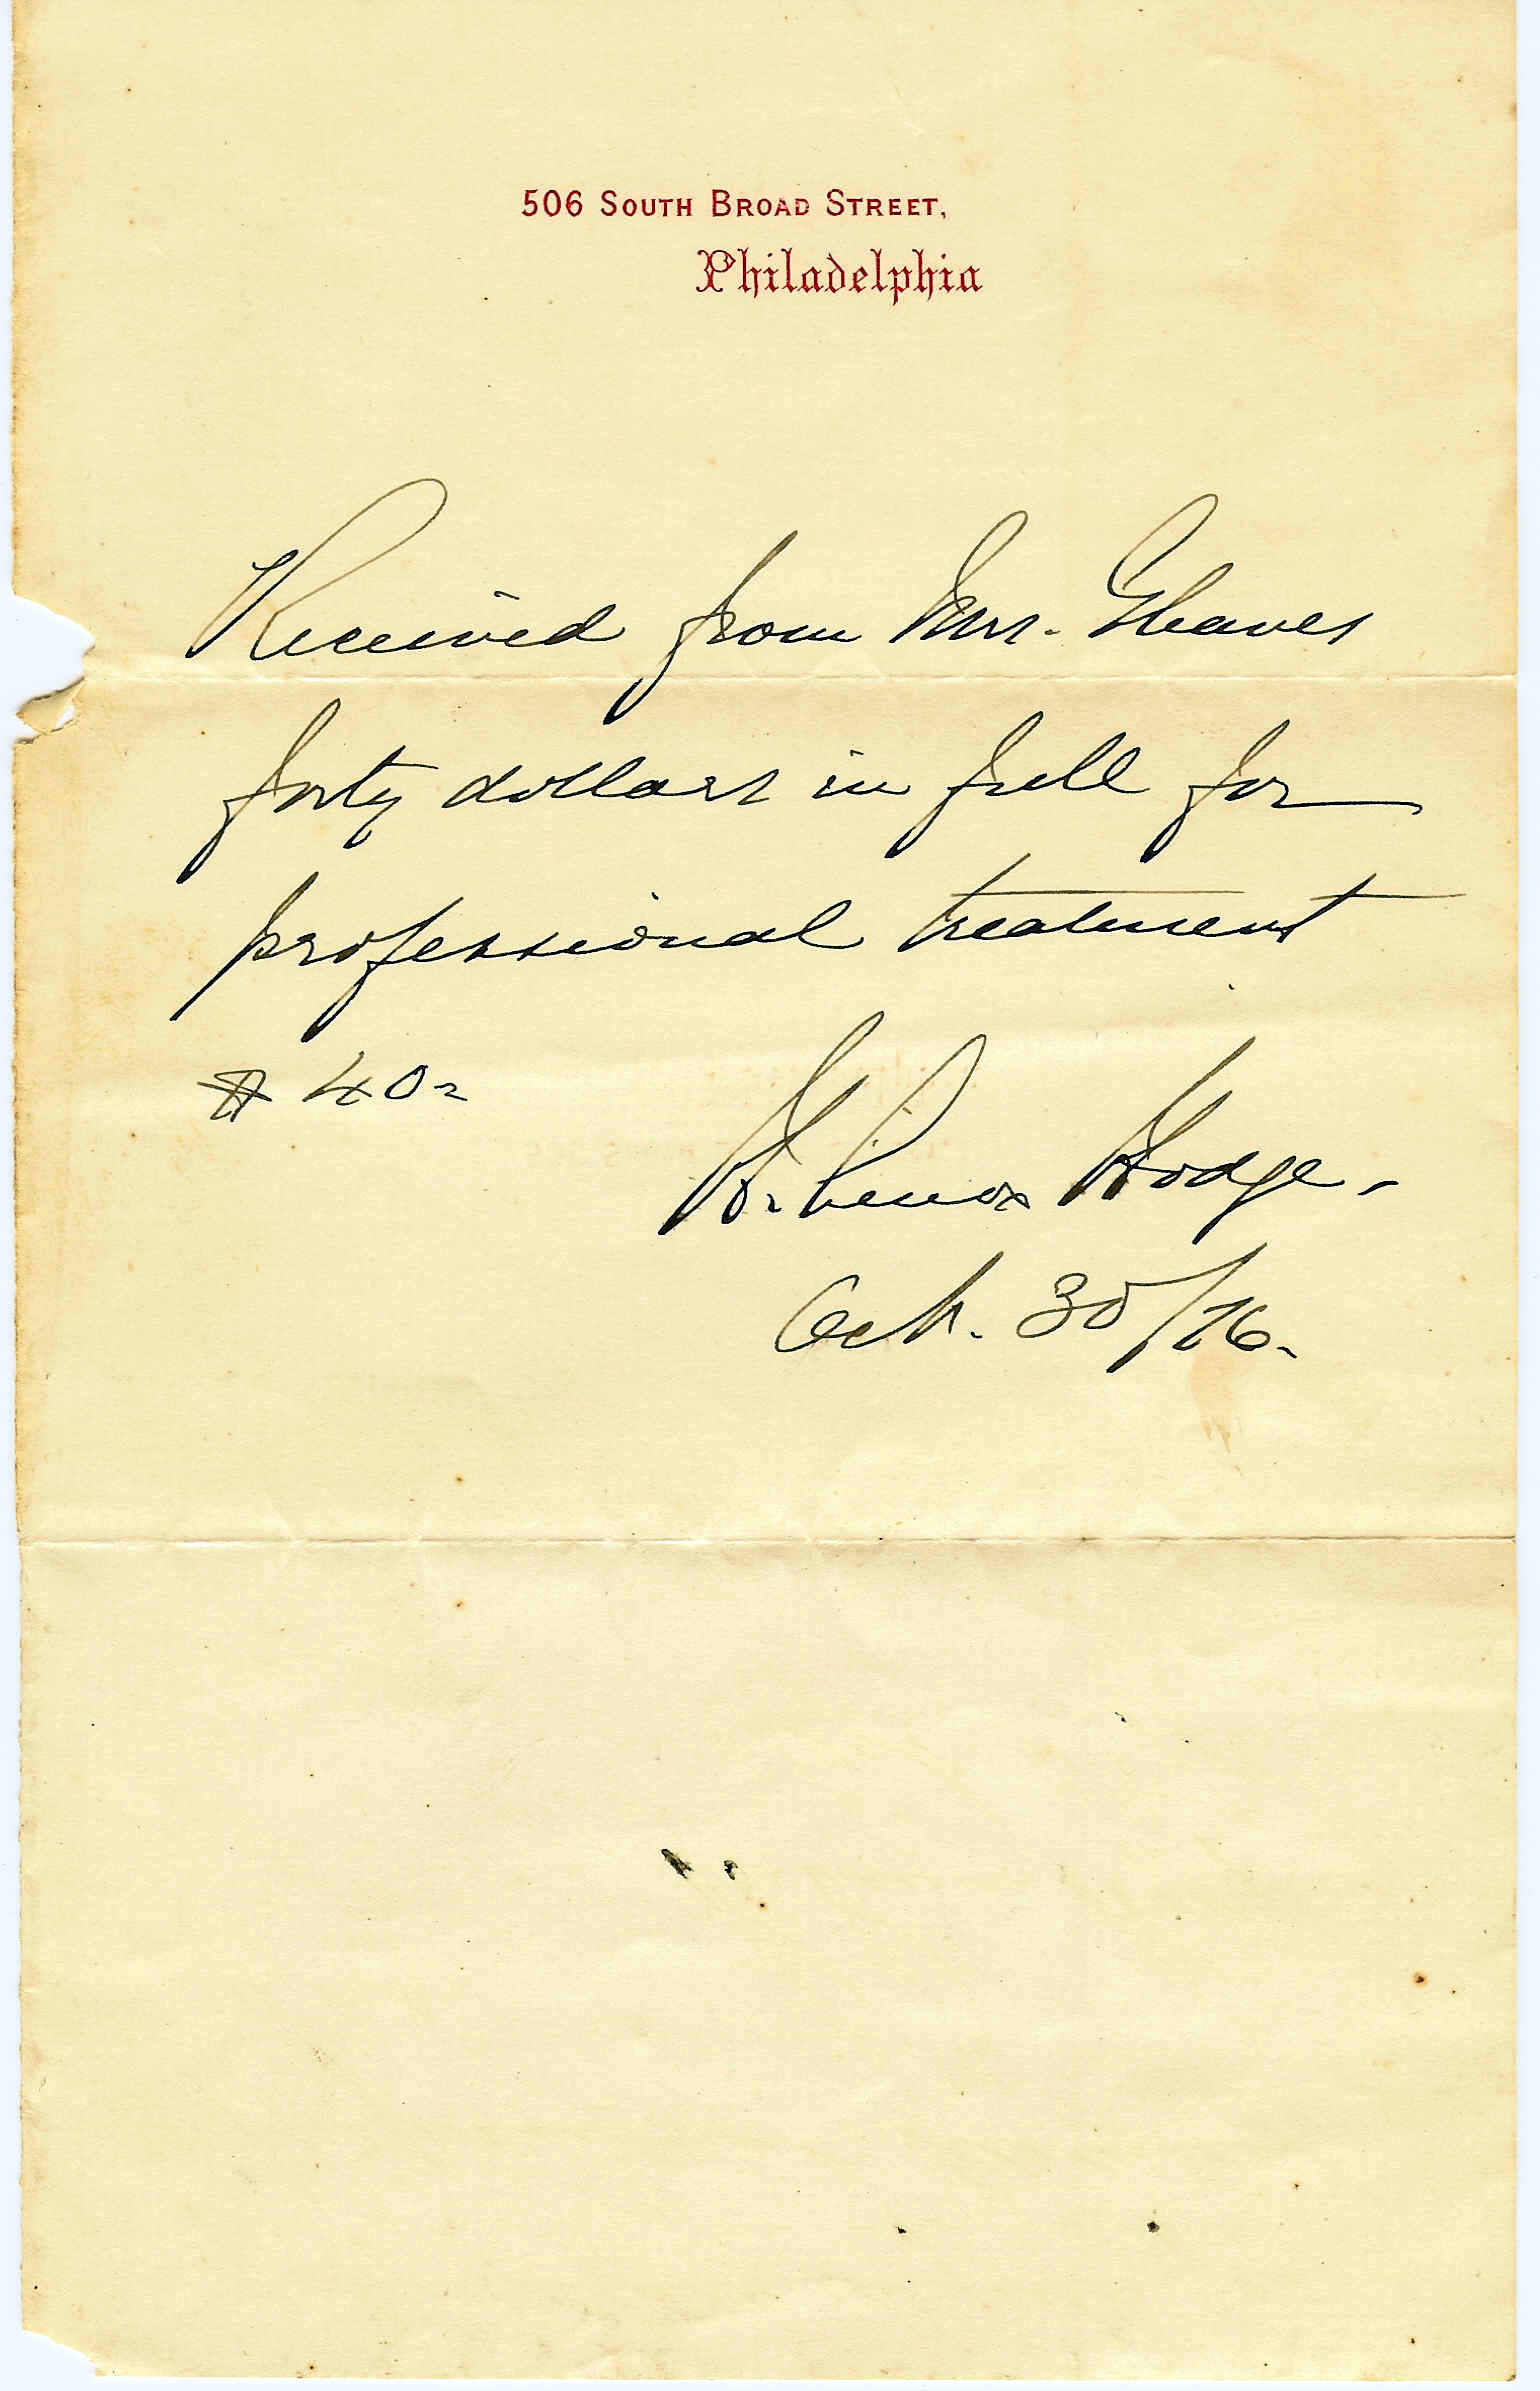 506 South Broad Street,
Philadelphia
Received from Mrs. Gleaves
forty dollars in full for
professional treatment
$ 40=
H. Lenox Hodge.
Oct. 30/76.